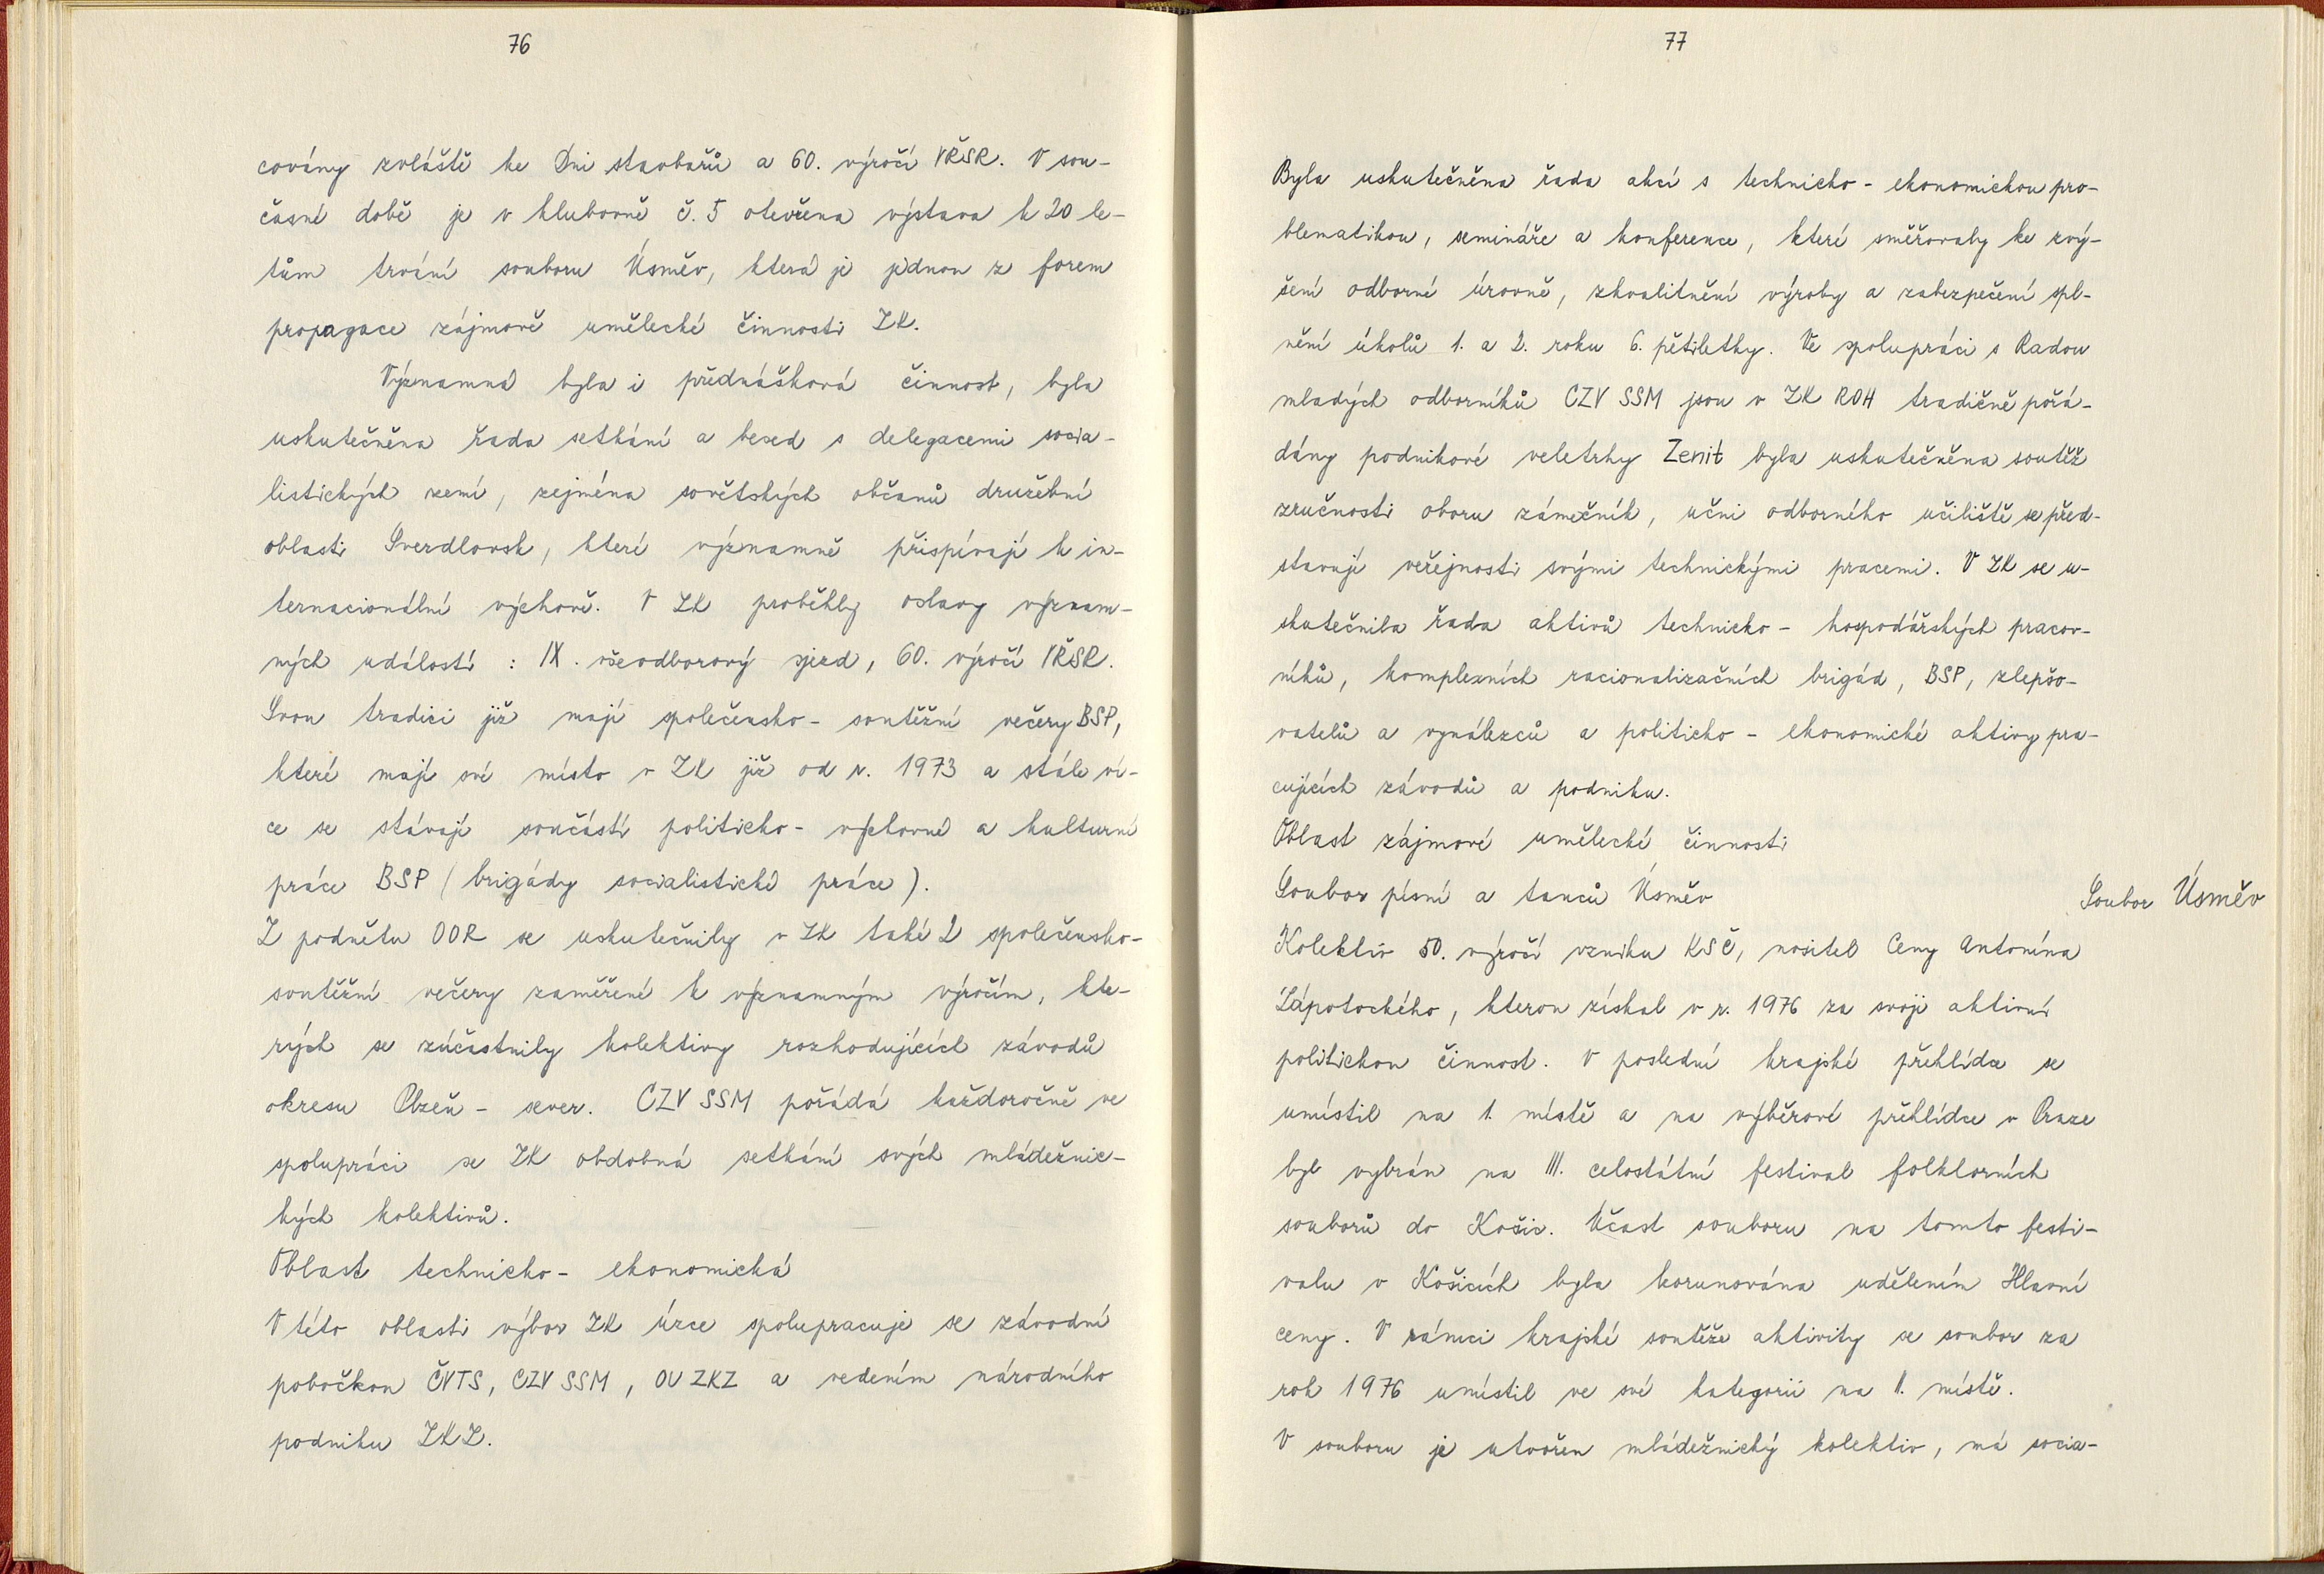 76
covány zvláště ke Dni stavbařů a 60. výročí VŘSR. V sou-
časné době je v klubovně č. 5 otevřena výstava k 20 le-
tům trvání souboru Úsměv, která je jednou z forem
propagace zájmově umělecké činnosti ZK.
Významná byla i přednášková činnost, byla
uskutečněna řada setkání a besed s delegacemi socia-
listických zemí, zejména sovětských občanů družební
oblasti Sverdlovsk, které významně přispívají k in-
ternacionální výchově. V ZK proběhly oslavy význam-
ných událostí : IX. všeodborový sjezd, 60. výročí VŘSR.
Svou tradici již mají společensko - soutěžní večery BSP,
které mají své místo v ZK již od r. 1973 a stále ví-
ce se stávají součástí politicko - výchovné a kulturní
práce BSP (brigády socialistické práce).
Z podnětu OOR se uskutečnily v ZK také 2 společensko-
soutěžní večery zaměřené k významným výročím, kte-
rých se zúčastnily kolektivy rozhodujících závodů
okresu Plzeň - sever. CZV SSM pořádá každoročně ve
spolupráci se ZK obdobná setkání svých mládežnic-
kých kolektivů.
Oblast technicko - ekonomická
V této oblasti výbor ZK úzce spolupracuje se závodní
pobočkou ČVTS, CZV SSM, OU ZKZ a vedením národního
podniku ZKZ.
77
Byla uskutečněna řada akcí s technicko - ekonomickou pro-
blematikou, semináře a konference, které směřovaly ke zvý-
šení odborné úrovně, zkvalitnění výroby a zabezpečení spl-
nění úkolů 1. a 2. roku 6. pětiletky. Ve spolupráci s Radou
mladých odborníků CZV SSM jsou v ZK ROH tradičně pořá-
dány podnikové veletrhy Zenit byla uskutečněna soutěž
zručnosti oboru zámečník, učni odborného učiliště se před-
stavují veřejnosti svými technickými pracemi. V ZK se u-
skutečnila řada aktivů technicko - hospodářských pracov-
níků, komplexních racionalizačních brigád, BSP, zlepšo-
vatelů a vynálezců a politicko - ekonomické aktivy pra-
cujících závodů a podniku.
Oblast zájmové umělecké činnosti
Soubor písní a tanců Úsměv
Soubor Úsměv
Kolektiv 50. výročí vzniku KSČ, nositel Ceny Antonína
Zápotockého, kterou získal v r. 1976 za svoji aktivní
politickou činnost. V poslední krajské přehlídce se
umístil na 1. místě a na výběrové přehlídce v Praze
byl vybrán na III. celostátní festival folklorních
souborů do Košic. Účast souboru na tomto festi-
valu v Košicích byla korunována udělením Hlavní
ceny. V rámci krajské soutěže aktivity se soubor za
rok 1976 umístil ve své kategorii na 1. místě.
V souboru je utvořen mládežnický kolektiv, má socia-